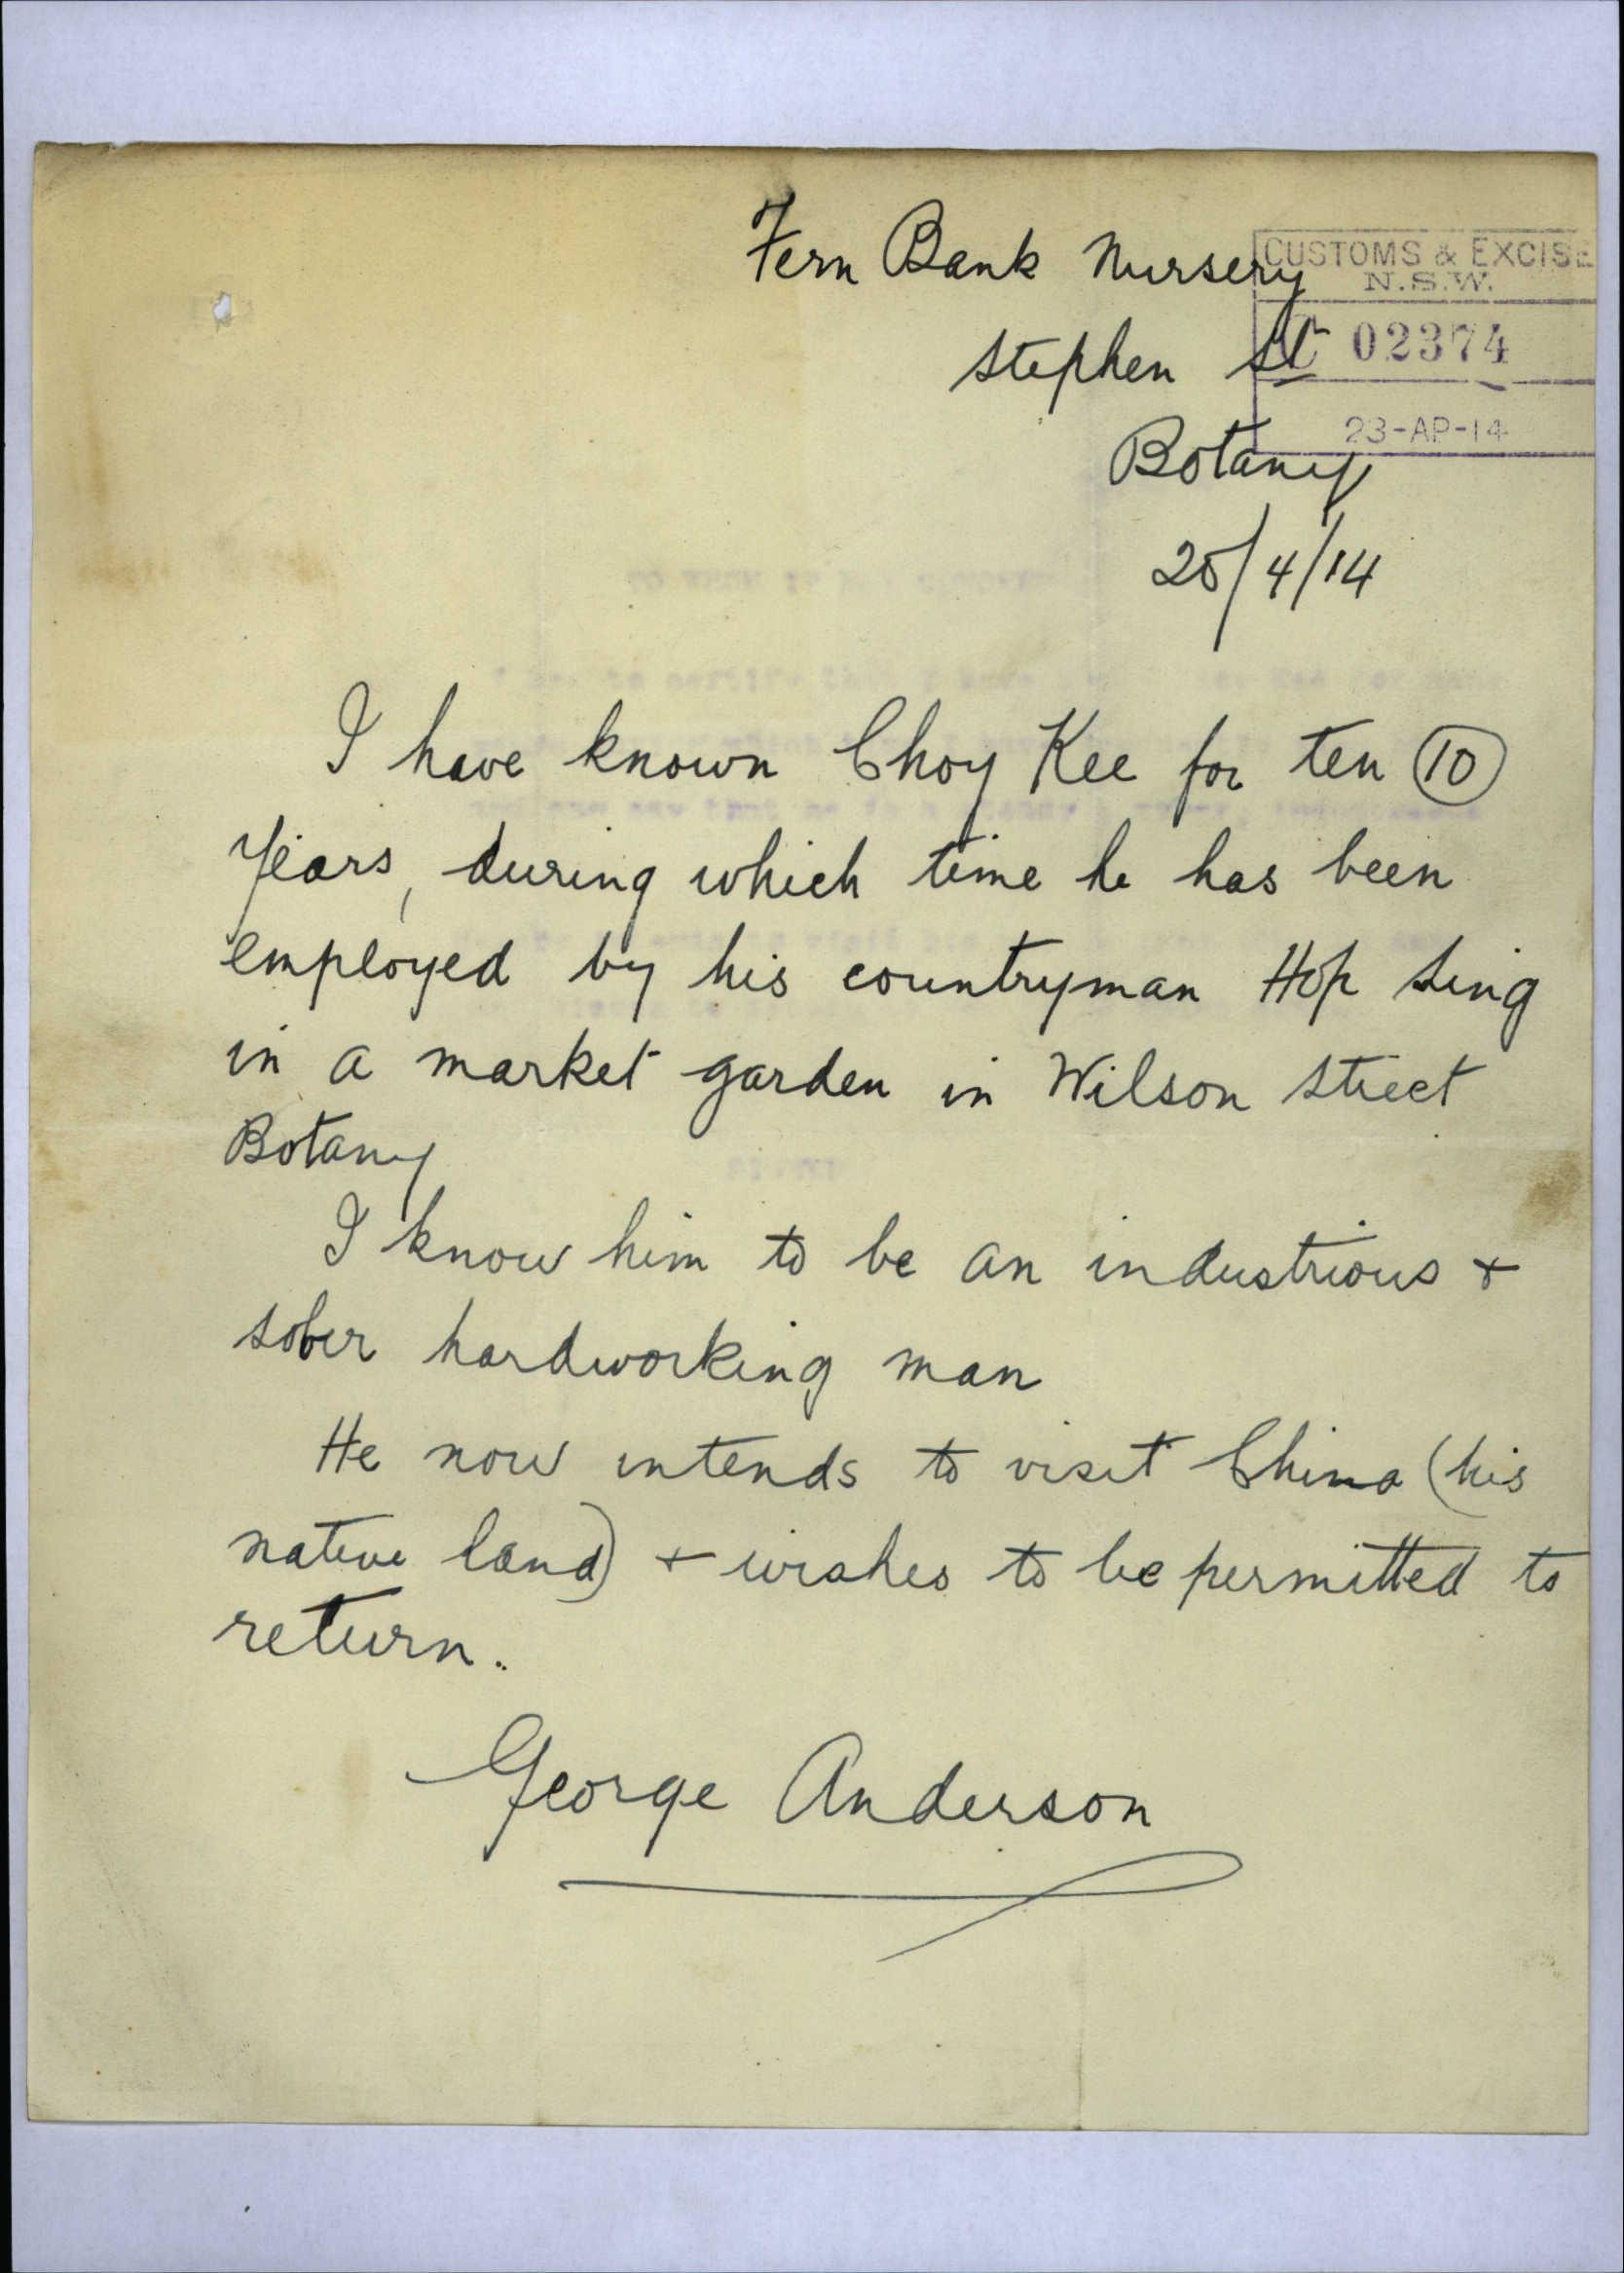 Fern Bank Nursery
CUSTOMS & EXCISE
N.S.W.
Stephen St
C 02374
23-AP-14
Botany
20/4/14
I have known Choy Kee for ten (10)
Years, during which time he has been
employed by his countryman Hop Sing
in a market garden in Wilson Street
Botany
I know him to be an industrious +
sober hardworking man
He now intends to visit China (his
native land) + wishes to be permitted to
return.
George Anderson